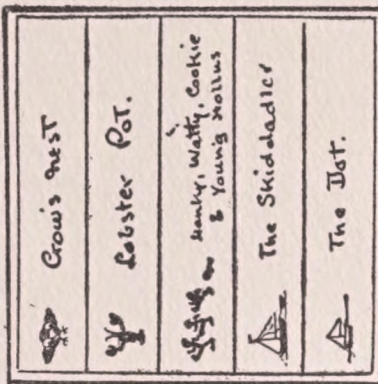 Crow's nest
Lobster Pot.
Hanky, Watty, Cookie
& Young Mollus
The Skiddadler
The Dot.